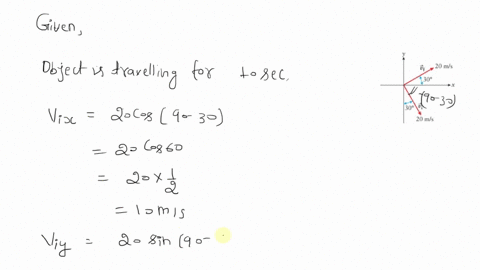 Given,
Object is travelling for 10 sec.
Vix = 20 cos (90-30)
= 20 cos 60
= 20 × 1/2
= 10 m/s
Viy = 20 sin (90-
y
20 m/s
30°
x
(90-30)
30°
20 m/s